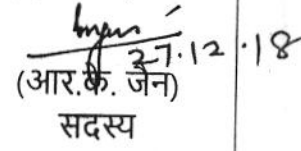 27.12.18
(आर.के. जैन)
सदस्य